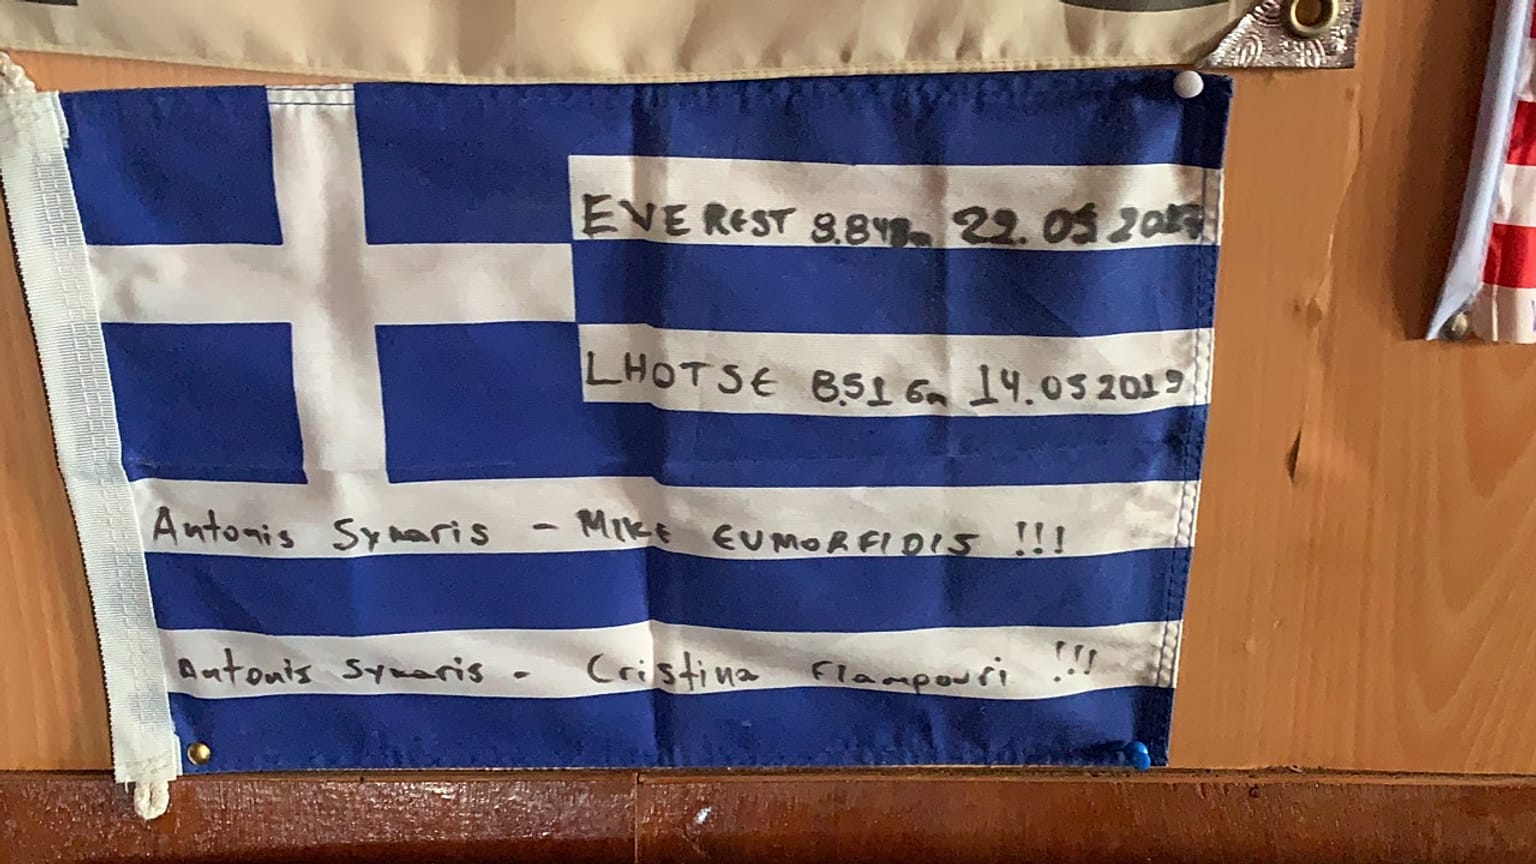 EVEREST 8.848m 22.05 2017
LHOTSE 8.516m 14.05 2019
Antonis Sykaris - MIKE EUMORFIDIS !!!
Antonis Sykaris - Cristina Flampouri !!!